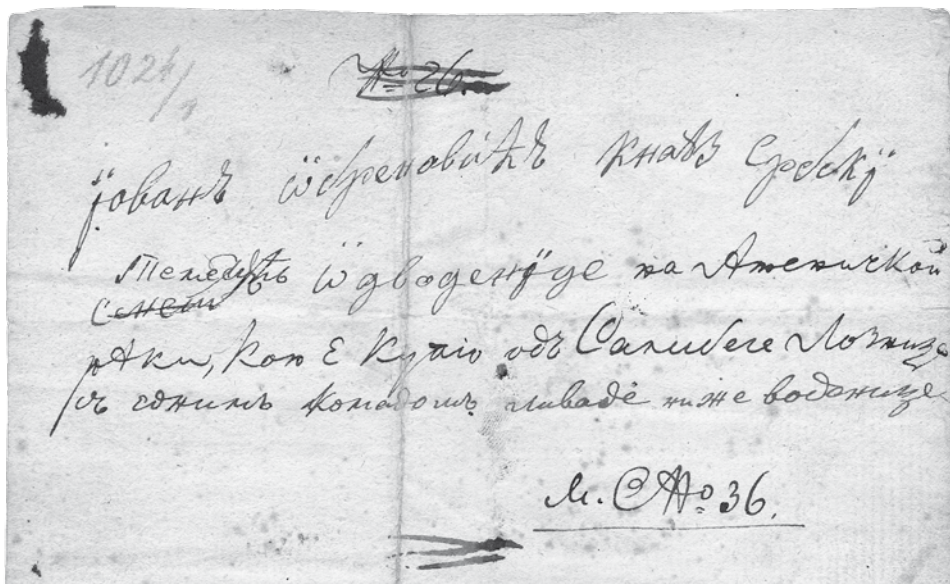 1024/1
№ 26.
Јованъ ѿбреновићъ кнѧз Србскј
ѿдводенјце на Атеничкой
рѣки, кою є купіо одъ Салибеге
съ еднимъ комадомъ ливаде ниже воденице
М. С № 36.